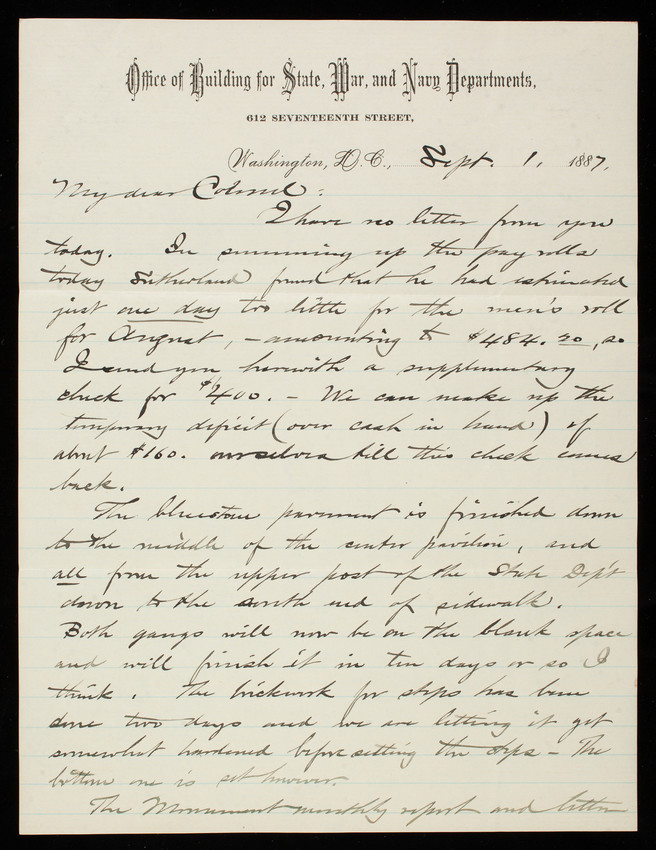 Office of Building for State, War, and Navy Departments,
612 SEVENTEENTH STREET,
Washington, D.C., Sept. 1, 1887,
My dear Colonel:
I have no letter from you
today. In summing up the pay rolls
today Sutherland found that he had estimated
just one day too little for the men's roll
for August, - amounting to $484.20, so
I send you herewith a supplementary
check for $400. - We can make up the
temporary deficit (over cash in hand) of
about $160. ourselves till this check comes
back.
The bluestone pavement is finished down
to the middle of the center pavilion, and
all from the upper post of the State Dep't
down to the south end of sidewalk.
Both gangs will now be on the blank space
and will finish it in ten days or so I
think. The brickwork for steps has been
done two days and we are letting it get
somewhat hardened before setting the steps - The
bottom one is set however.
The Monument monthly report and letter